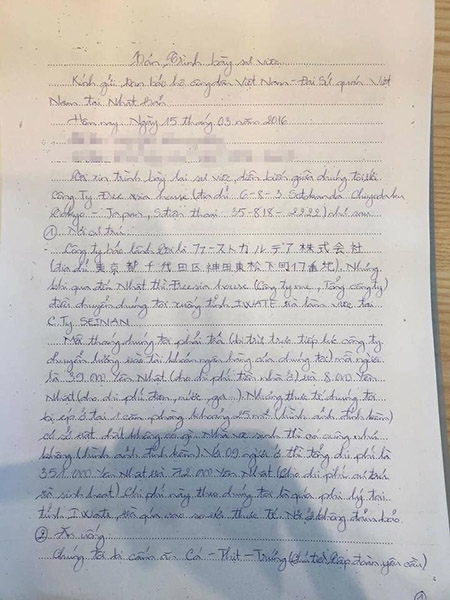 Đơn Trình bày sự việc
Kính gửi Ban bảo hộ công dân Việt Nam - Đại Sứ quán Việt
Nam tại Nhật Bản
Hôm nay Ngày 15 tháng 03 năm 2016
xin trình bày lại sự việc, diễn biến giữa chúng tôi với
Công Ty Free sia house (địa chỉ 6-8-3 Sotokanda Chiyodaku
Tokyo - Japan, S.điện thoại 35-818-2222) như sau
① Nơi cư trú.
Công ty bảo lãnh là ファーストカルデア株式会社
(địa chỉ 東京都千代田区神田東松下町17番地). Nhưng
khi qua đến Nhật thì Freesia house (Công ty mẹ, Tổng công ty)
điều chuyển chúng tôi xuống tỉnh IWATE và làm việc tại
C.Ty SEINAN
Mỗi tháng chúng tôi phải trả (bị trừ trực tiếp lúc công ty
chuyển lương vào tài khoản ngân hàng của chúng tôi) mỗi người
là 39.000 Yên Nhật (cho chi phí tiền nhà ở) và 8.000 Yên
Nhật (cho chi phí điện, nước, ga...). Nhưng thực tế chúng tôi
bị ép ở tại 1 căn phòng khoảng 25 m2 (hình ảnh đính kèm)
cơ sở vật chất không có gì. Nhà vệ sinh thì cũng như
không (hình ảnh đính kèm). Và 09 người ở thì tổng chi phí là
351.000 Yên Nhật và 72.000 Yên Nhật (Cho chi phí cư trú
và sinh hoạt). Chi phí này theo chúng tôi là quá phi lý tại
tỉnh Iwate, và quá cao so với thực tế. Nơi ở không đảm bảo.
② Ăn uống
Chúng tôi bị cấm ăn Cá - Thịt - Trứng (Chủ tịch tập đoàn yêu cầu)